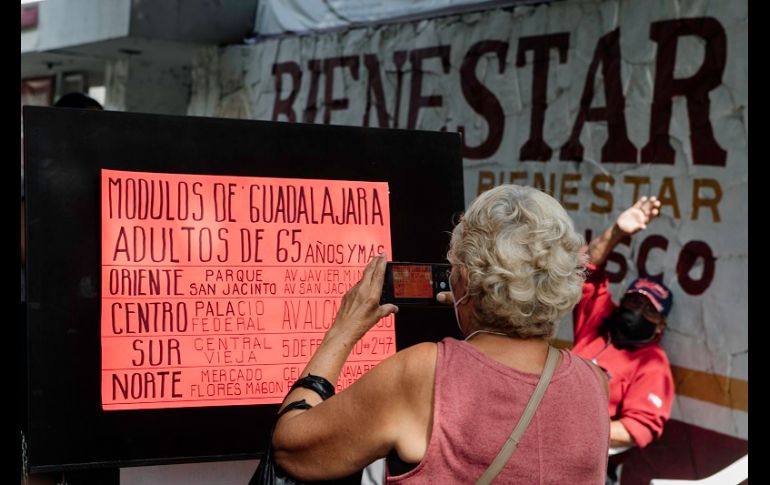 BIENESTAR
BIENESTAR
MODULOS DE GUADALAJARA
ADULTOS DE 65 AÑOS Y MAS
ORIENTE PARQUE SAN JACINTO AV JAVIER MIN AV SAN JACIN
CENTRO PALACIO FEDERAL AV ALCA
SUR CENTRAL VIEJA 5 DE FE #247
NORTE MERCADO FLORES MAGON